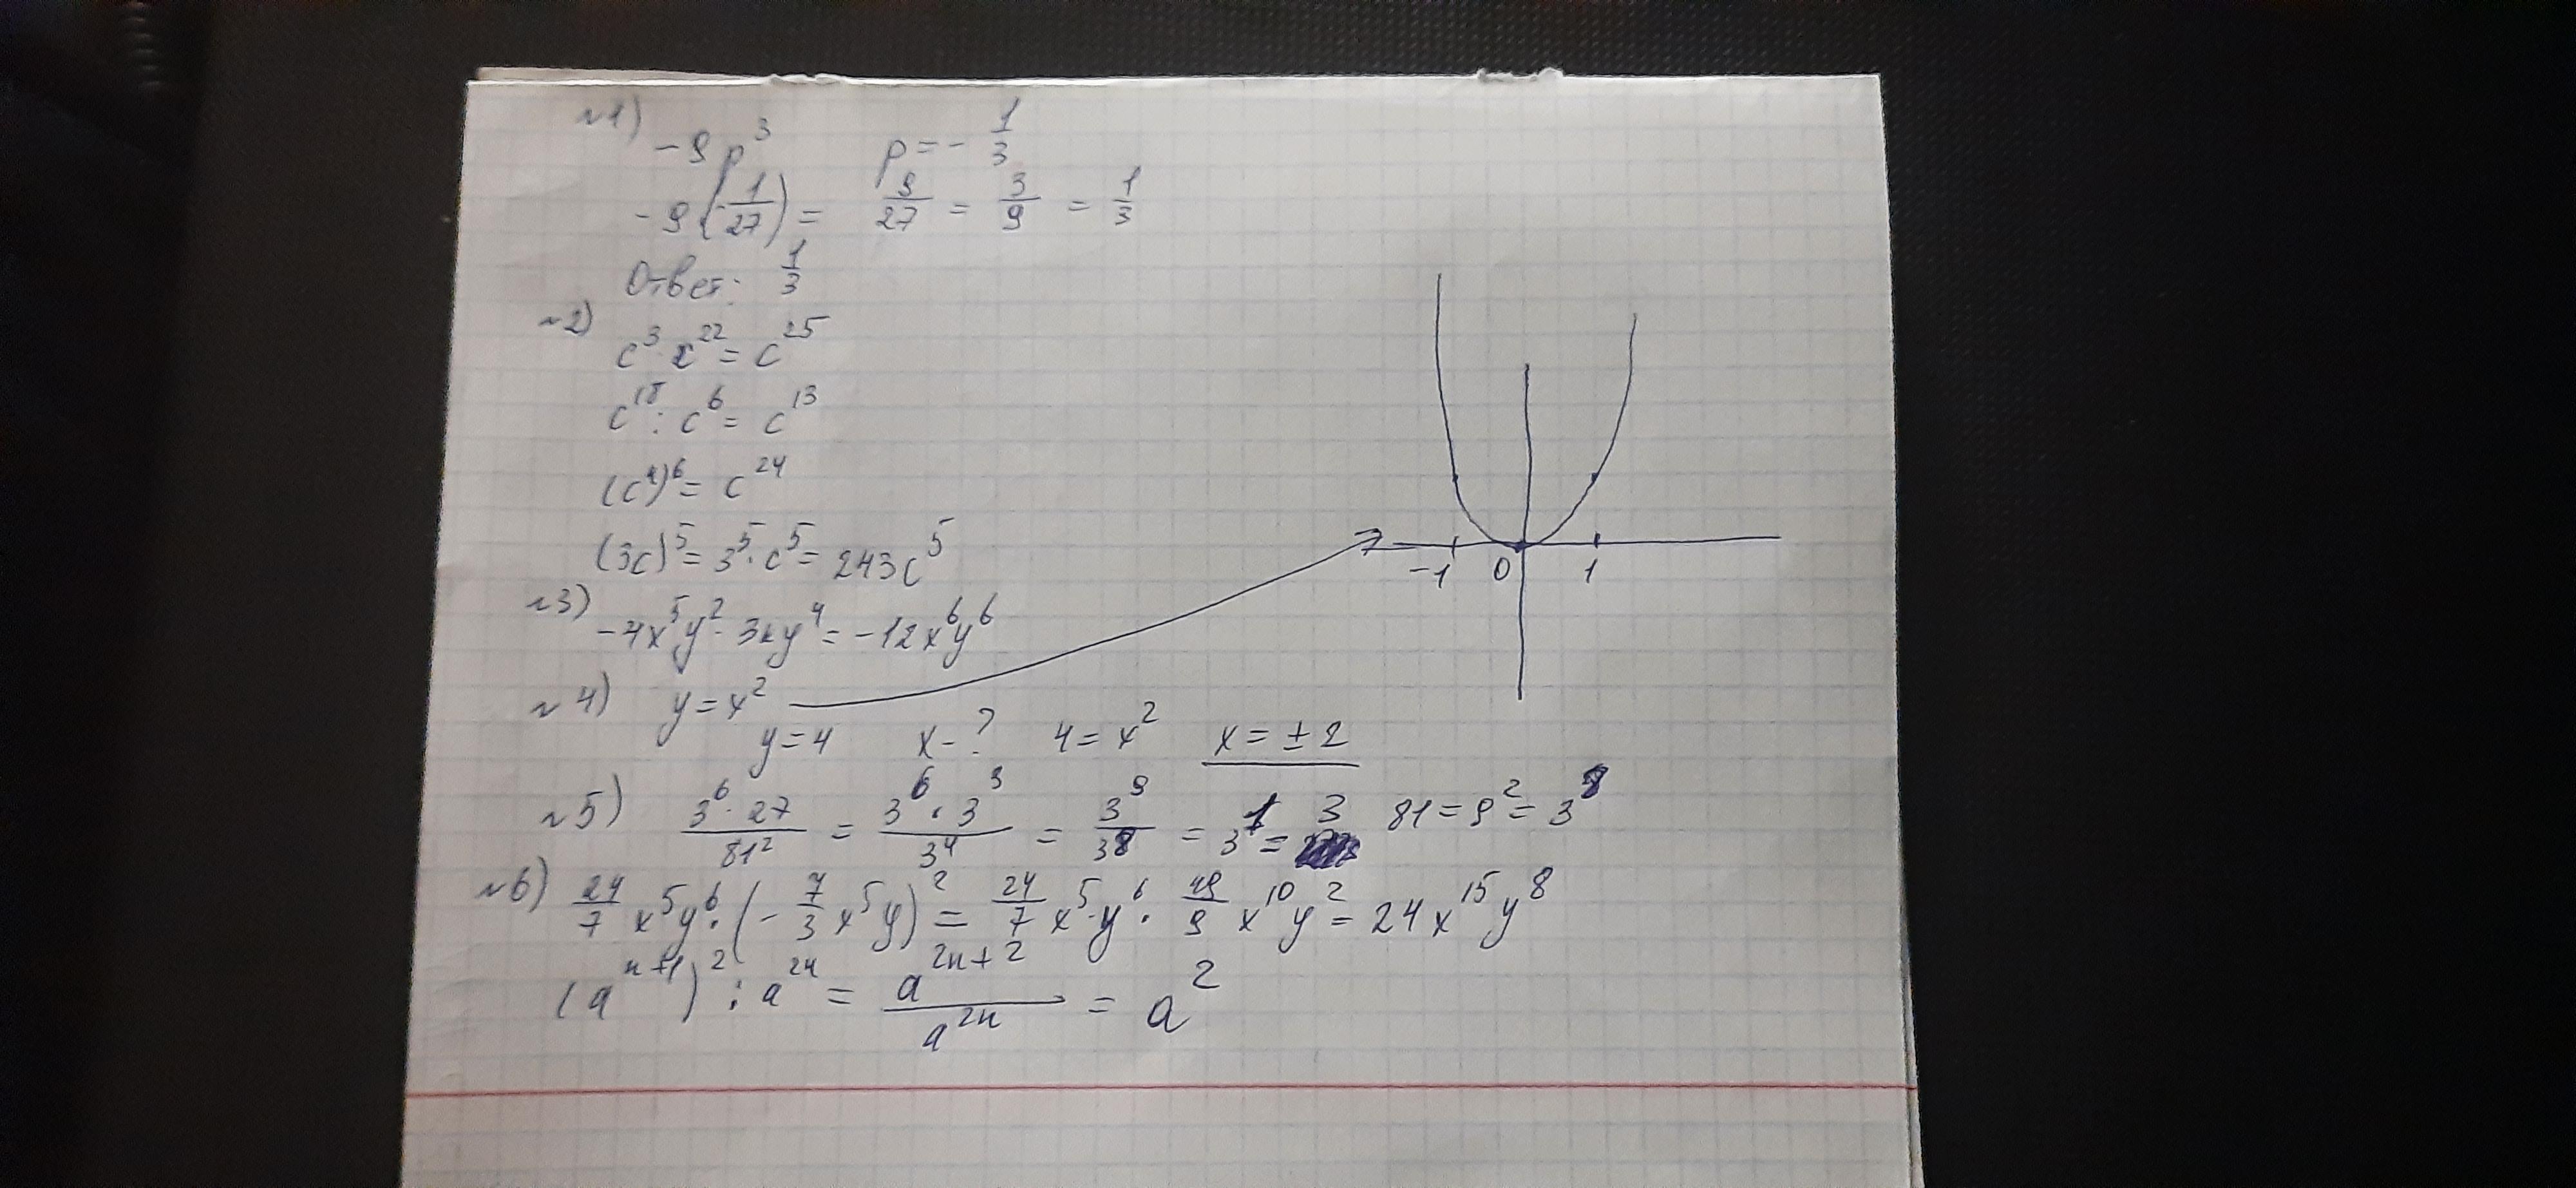 №1)
-9p³ p = -1/3
-9(-1/27) = 9/27 = 3/9 = 1/3
Ответ: 1/3
№2)
c³·c²² = c²⁵
c¹⁸ : c⁶ = c¹³
(c⁴)⁶ = c²⁴
(3c)⁵ = 3⁵·c⁵ = 243c⁵
№3)
-4x⁵y²·3xy⁴ = -12x⁶y⁶
№4) y = x²
y = 4 x - ? 4 = x² x = ±2
-1 0 1
№5) 3⁶·27/81² = 3⁶·3³/3⁴ = 3⁹/3⁸ = 3¹ = 3 81 = 9² = 3⁸
№6) 24/7 x⁵y⁶·(-7/3 x⁵y)² = 24/7 x⁵·y⁶·49/9 x¹⁰y² = 24x¹⁵y⁸
(aⁿ⁺¹)² : a²ⁿ = a²ⁿ⁺²/a²ⁿ = a²